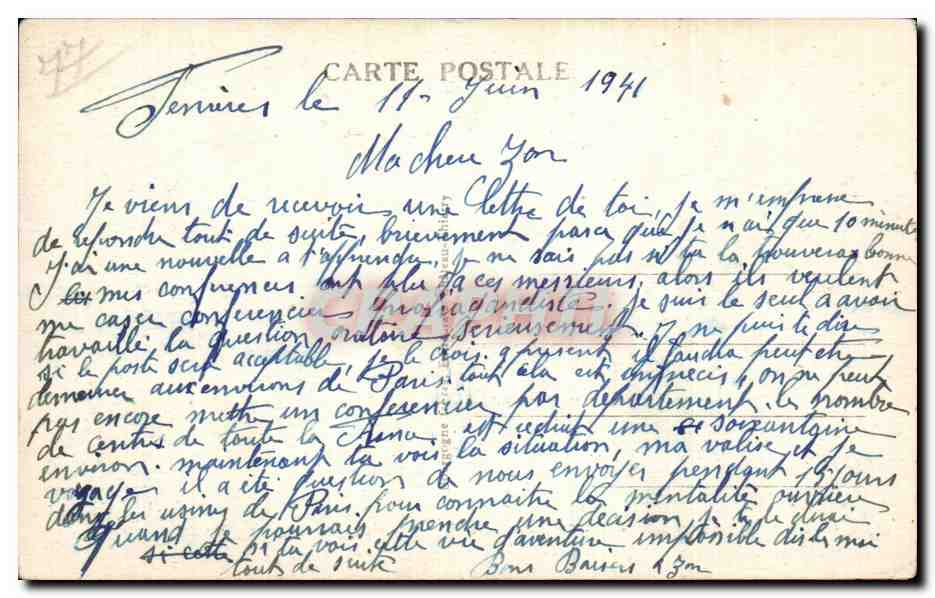 77
CARTE POSTALE
le 11 Juin 1941
Ma cheu Zon
Je viens de recevoir une lettre de toi, je m'empresse
de repondre tout de suite, brievement parce que je n'ai que 10 minutes
J'ai une nouvelle a t'apprendre, je ne sais pas si tu la trouveras bonne
mes conferences ont plu a ces messieurs, alors ils veulent
me caser conferencier propagandiste. Je suis le seul a avoir
travaille la question oratoire serieusement. Je ne puis te dire
si le poste sera acceptable, je le crois. a present il faudra peut etre
demeurer aux environs de Paris. tout cela est imprecis, on ne peut
pas encore mettre un conferencier par departement. le nombre
de centres de toute la France est reduit a une soixantaine
environ. maintenant tu vois la situation, ma valise et je
voyage, il a été question de nous envoyer pendant 15 jours
dans les usines de Paris pour connaitre la mentalité ouvriere
Quand je pourrais prendre une decision je te le dirai
si tu vois cette vie d'aventure impossible dis le moi
tout de suite Bons Baisers Zon